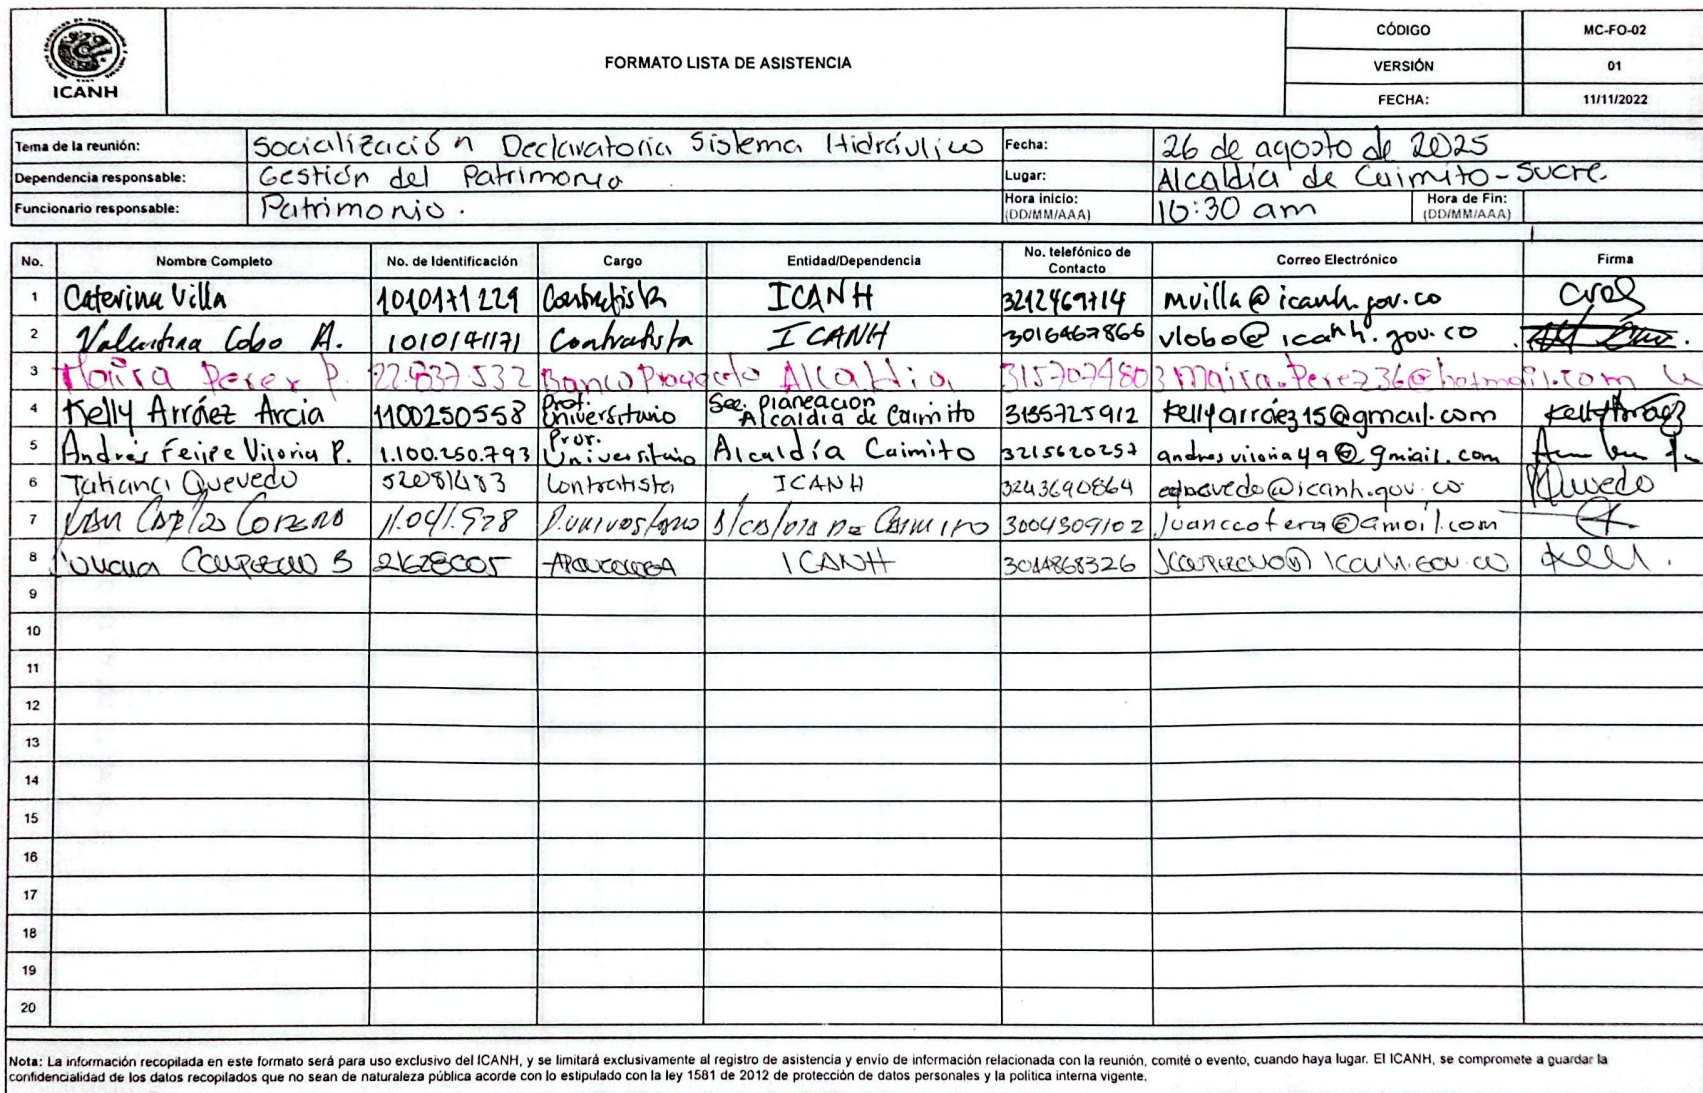 ICANH
FORMATO LISTA DE ASISTENCIA
CÓDIGO MC-FO-02
VERSIÓN 01
FECHA: 11/11/2022
Tema de la reunión: Socialización Declaratoria Sistema Hidráulico Fecha: 26 de agosto de 2025
Dependencia responsable: Gestión del Patrimonio Lugar: Alcaldía de Caimito-Sucre.
Funcionario responsable: Patrimonio. Hora inicio: (DD/MM/AAA) 10:30 am Hora de Fin: (DD/MM/AAA)
No. Nombre Completo No. de Identificación Cargo Entidad/Dependencia No. telefónico de Contacto Correo Electrónico Firma
1 Caterina Villa 1010171229 Contratista ICANH 3212469714 mvilla@icanh.gov.co
2 Valentina Lobo A. 1010141171 Contratista ICANH 3016467866 vlobo@icanh.gov.co
3 Maira Perez P. Banco Proyecto Alcaldia 3157074803 Maira.Perez36@hotmail.com
4 Kelly Arráez Arcia 1100250558 Prof. Universitario Sec. planeacion Alcaldia de Caimito 3135725912 kellyarraez15@gmail.com Kelly Arráez
5 Andres Felipe Viloria P. 1.100.250.793 Prof. Universitario Alcaldía Caimito 3215620257 andresviloria49@gmail.com
6 Tatiana Quevedo 52081483 Contratista ICANH 3243690864 Quevedo
7 Juan Carlos 11.041.928 P. universitario Alcaldia de Caimito 3004309102
8 21628005 ICANH 3044868326
9
10
11
12
13
14
15
16
17
18
19
20
Nota: La información recopilada en este formato será para uso exclusivo del ICANH, y se limitará exclusivamente al registro de asistencia y envío de información relacionada con la reunión, comité o evento, cuando haya lugar. El ICANH, se compromete a guardar la
confidencialidad de los datos recopilados que no sean de naturaleza pública acorde con lo estipulado con la ley 1581 de 2012 de protección de datos personales y la política interna vigente.